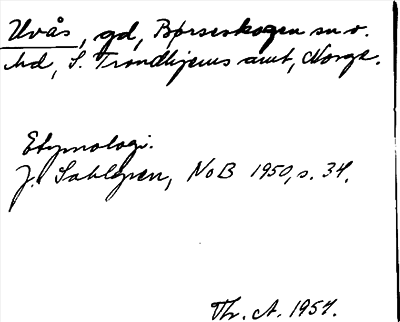 Uvås, gd, Børseskogen sn o.
hd, S. Trondhjems amt, Norge.
Etymologi.
J. Sahlgren, NoB 1950, s. 34.
Th. A. 1957.